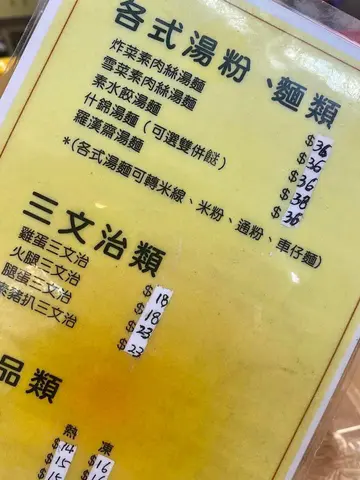 各式湯粉、麵類
炸菜素肉絲湯麵 $36
雪菜素肉絲湯麵 $36
素水餃湯麵 $36
什錦湯麵(可選雙併餸) $38
羅漢齋湯麵 $36
*(各式湯麵可轉米線、米粉、通粉、車仔麵)
三文治類
雞蛋三文治 $18
火腿三文治 $18
腿蛋三文治 $23
素豬扒三文治 $23
品類
熱 凍
$14
$15 $16
$15 $16